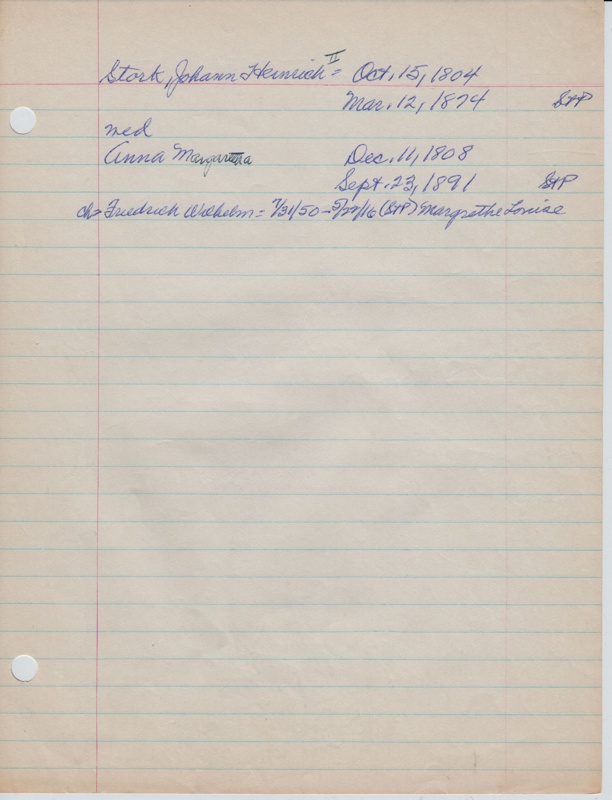 Stork, Johann Heinrich II = Oct. 15, 1804
Mar. 12, 1874 StP
med
Anna Margaretha Dec. 11, 1808
Sept. 23, 1891 StP
ch = Friedrich Wilhelm = 7/31/50 - 5/29/16 (StP) Margrethe Louise